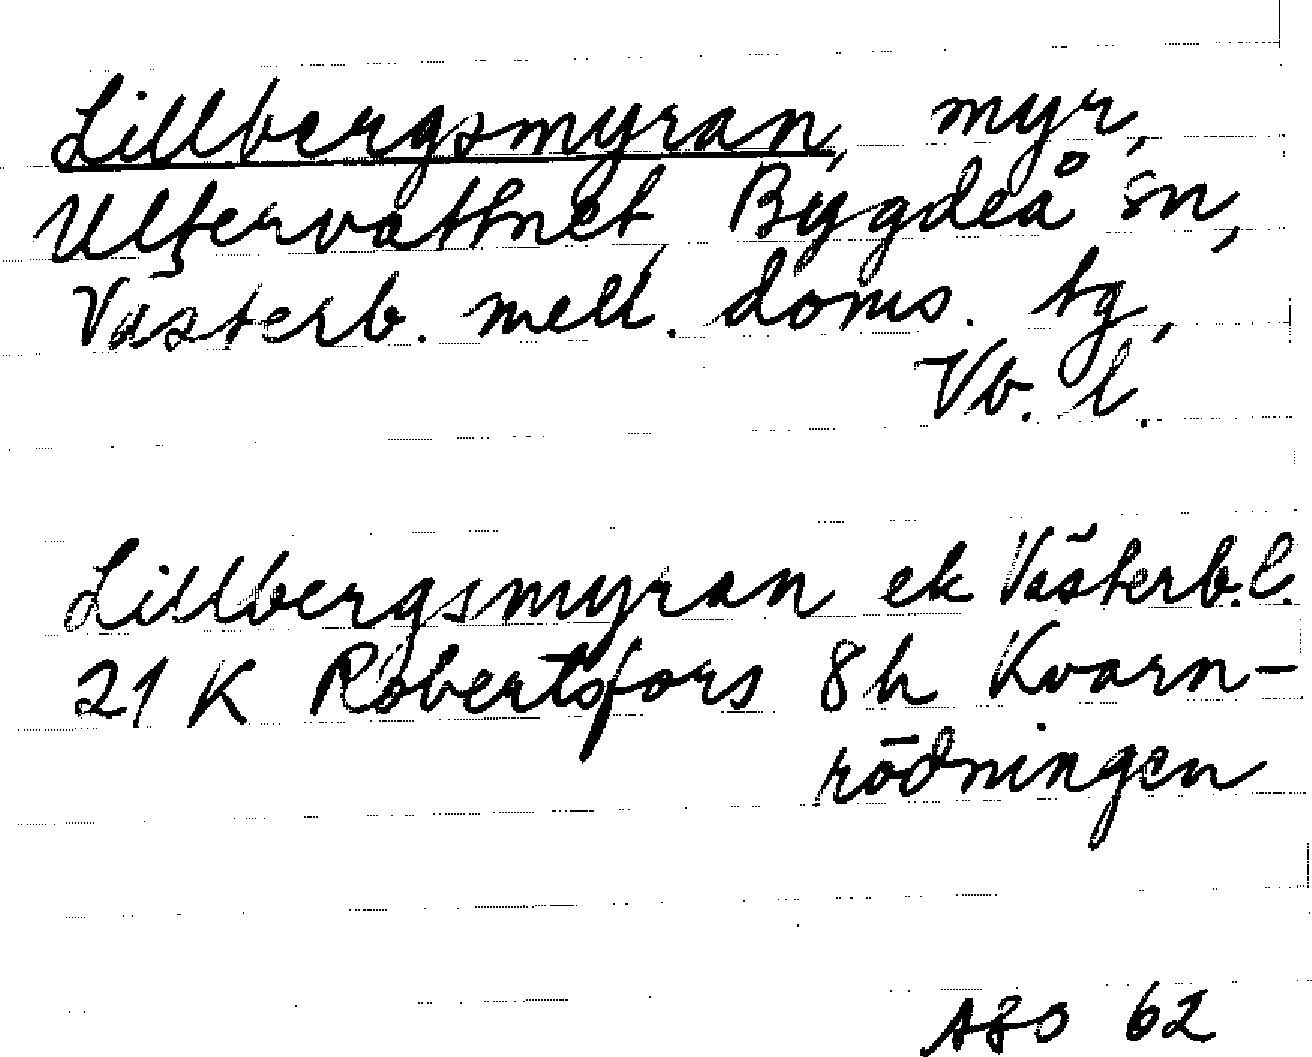 Lillbergsmyran, myr,
Ultervattnet, Bygdeå sn,
Västerb. mell. doms. tg,
Vb. l.
Lillbergsmyran ek Västerb.l.
21 K Robertsfors 8h Kvarn-
rödningen
62